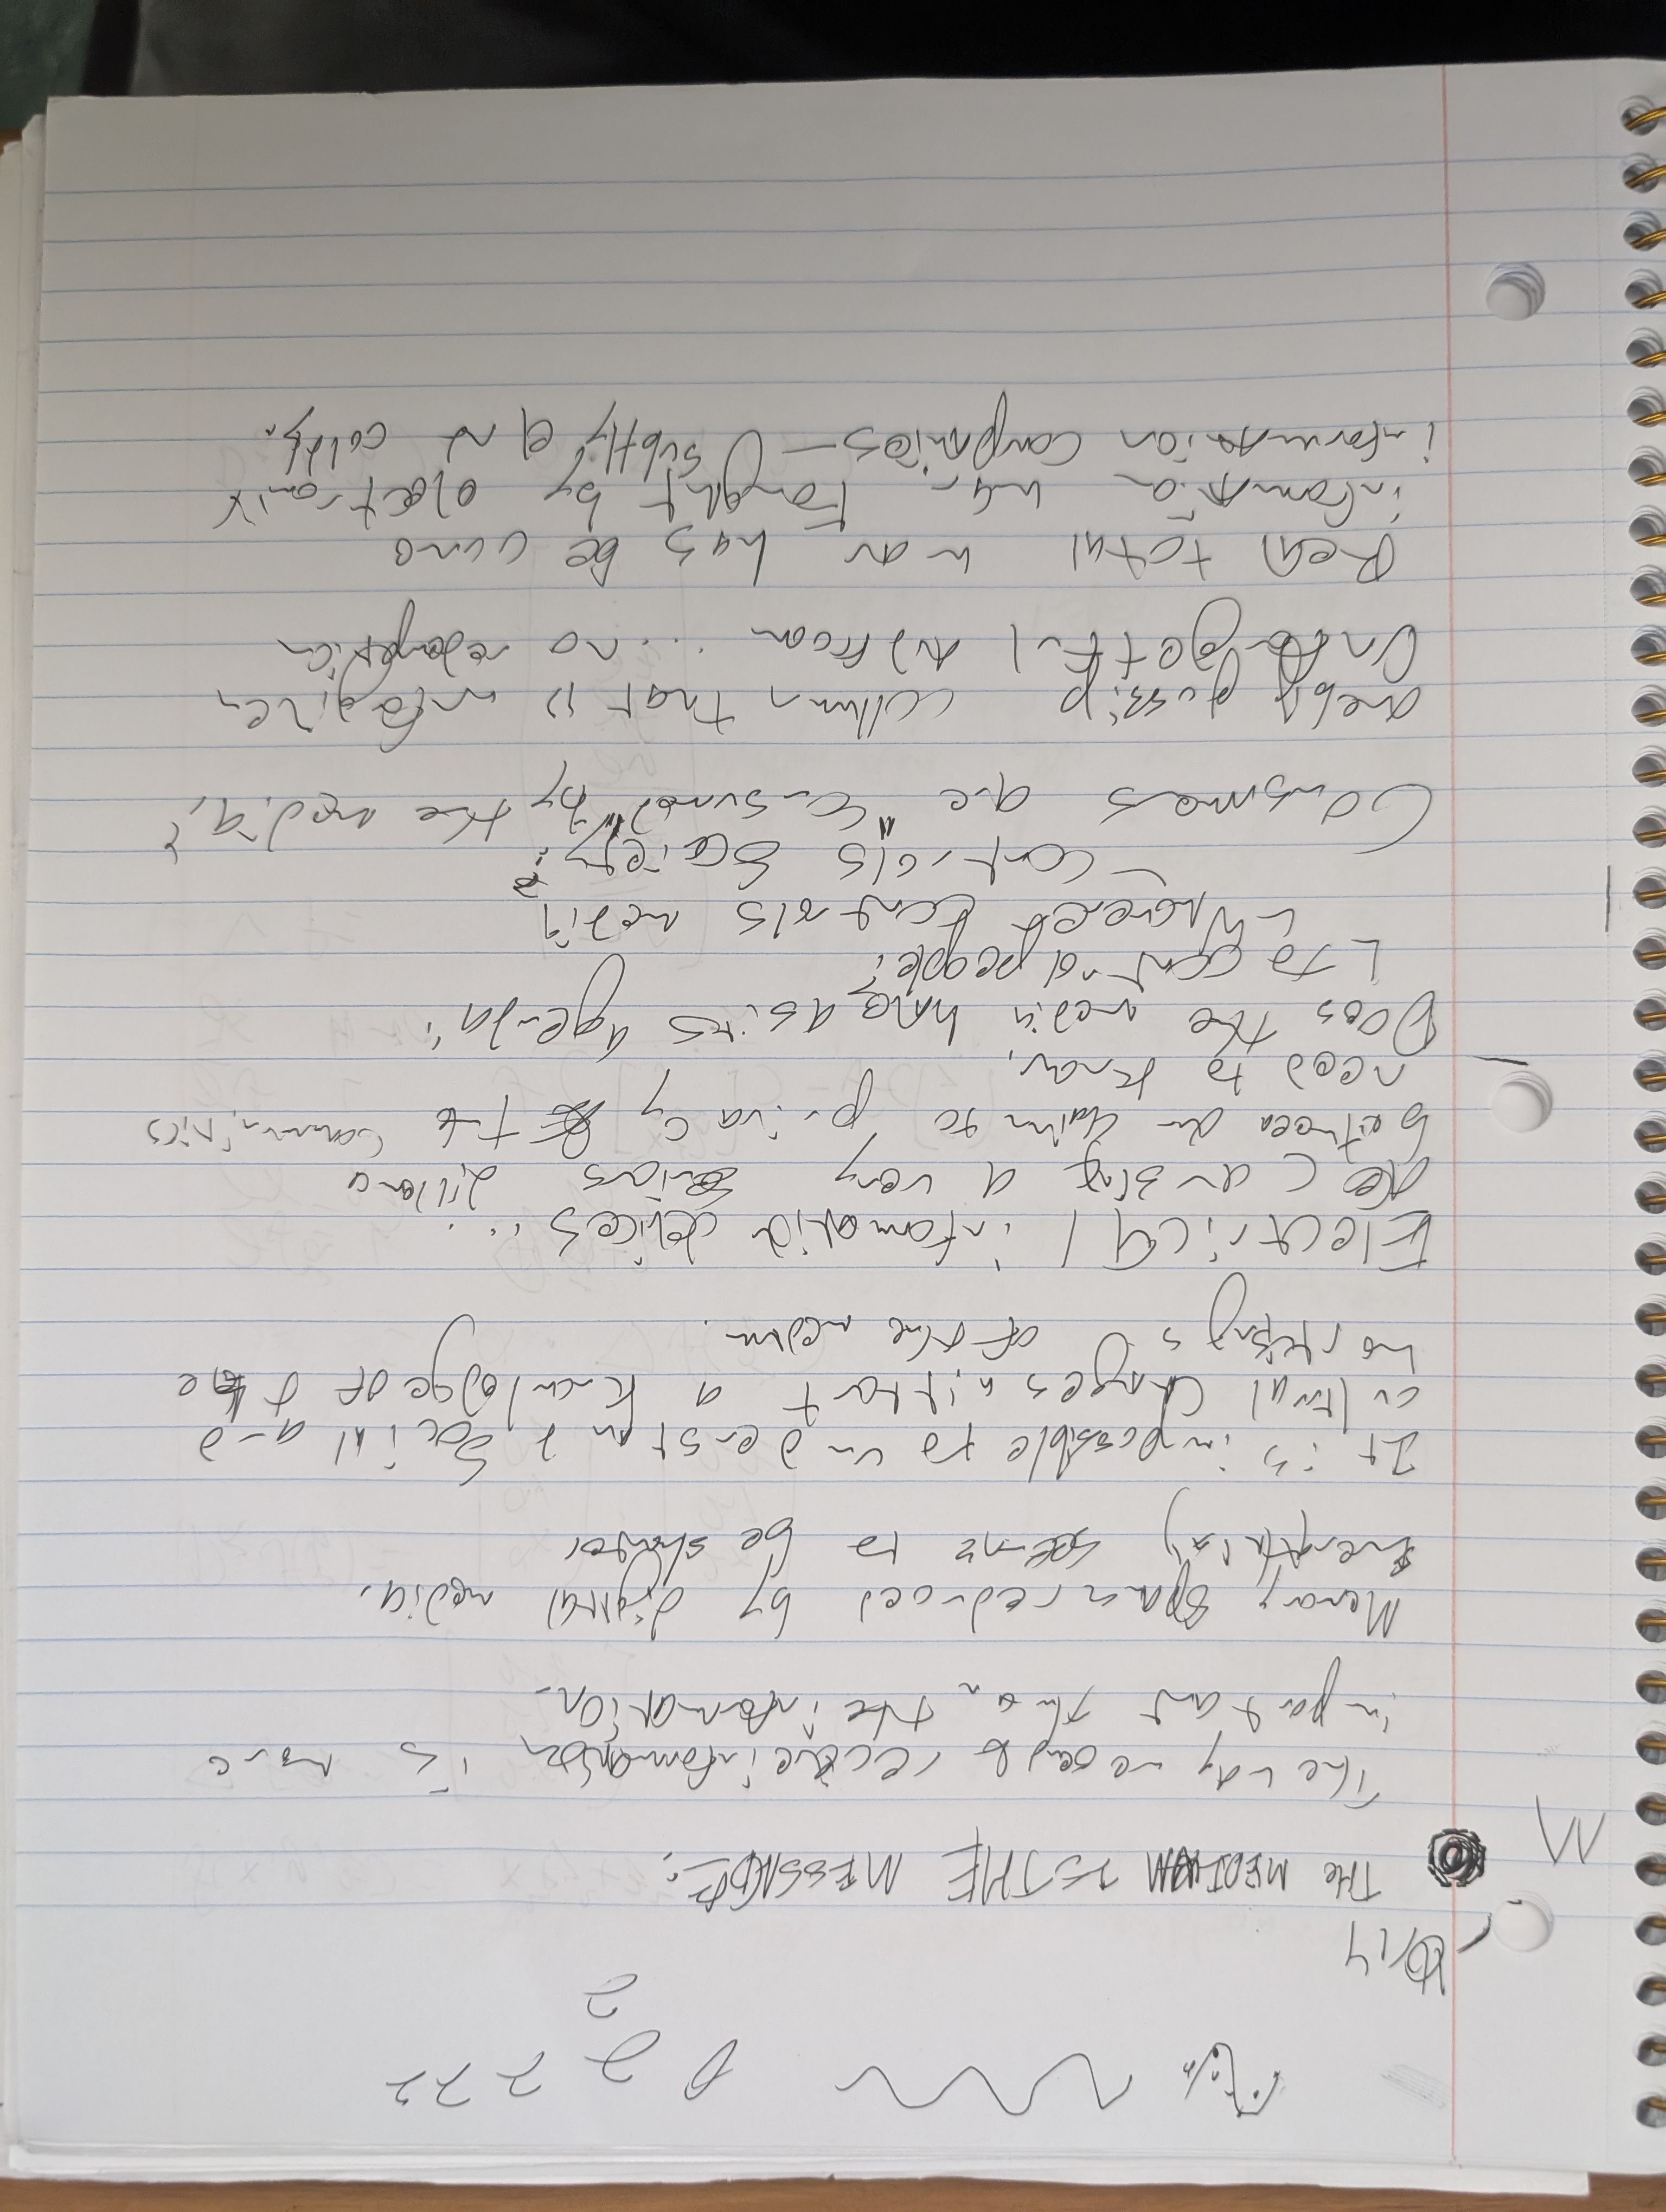 2 2 2 2
2
10/14
M
THE MEDIUM IS THE MESSAGE:
The way we send & recieve information is more
important than the information.
Memory span reduced by digital media.
Everything seems to be shorter
It is impossible to understand social and
cultural changes without a knowledge of the
workings of the medium.
Electrical information devices...
are causing a very serious dillema
between our claim to privacy & the communities
need to know.
Does the media have as its agenda:
to control people?
Whoever controls media
- controls society?
Consumers are "consumed" by the media?
one big gossip collumn that is unforgiven
Unforgetful and from ... no redemption
Real total war has become
information war. Fought by electronic
information companies— subtly and coldly.